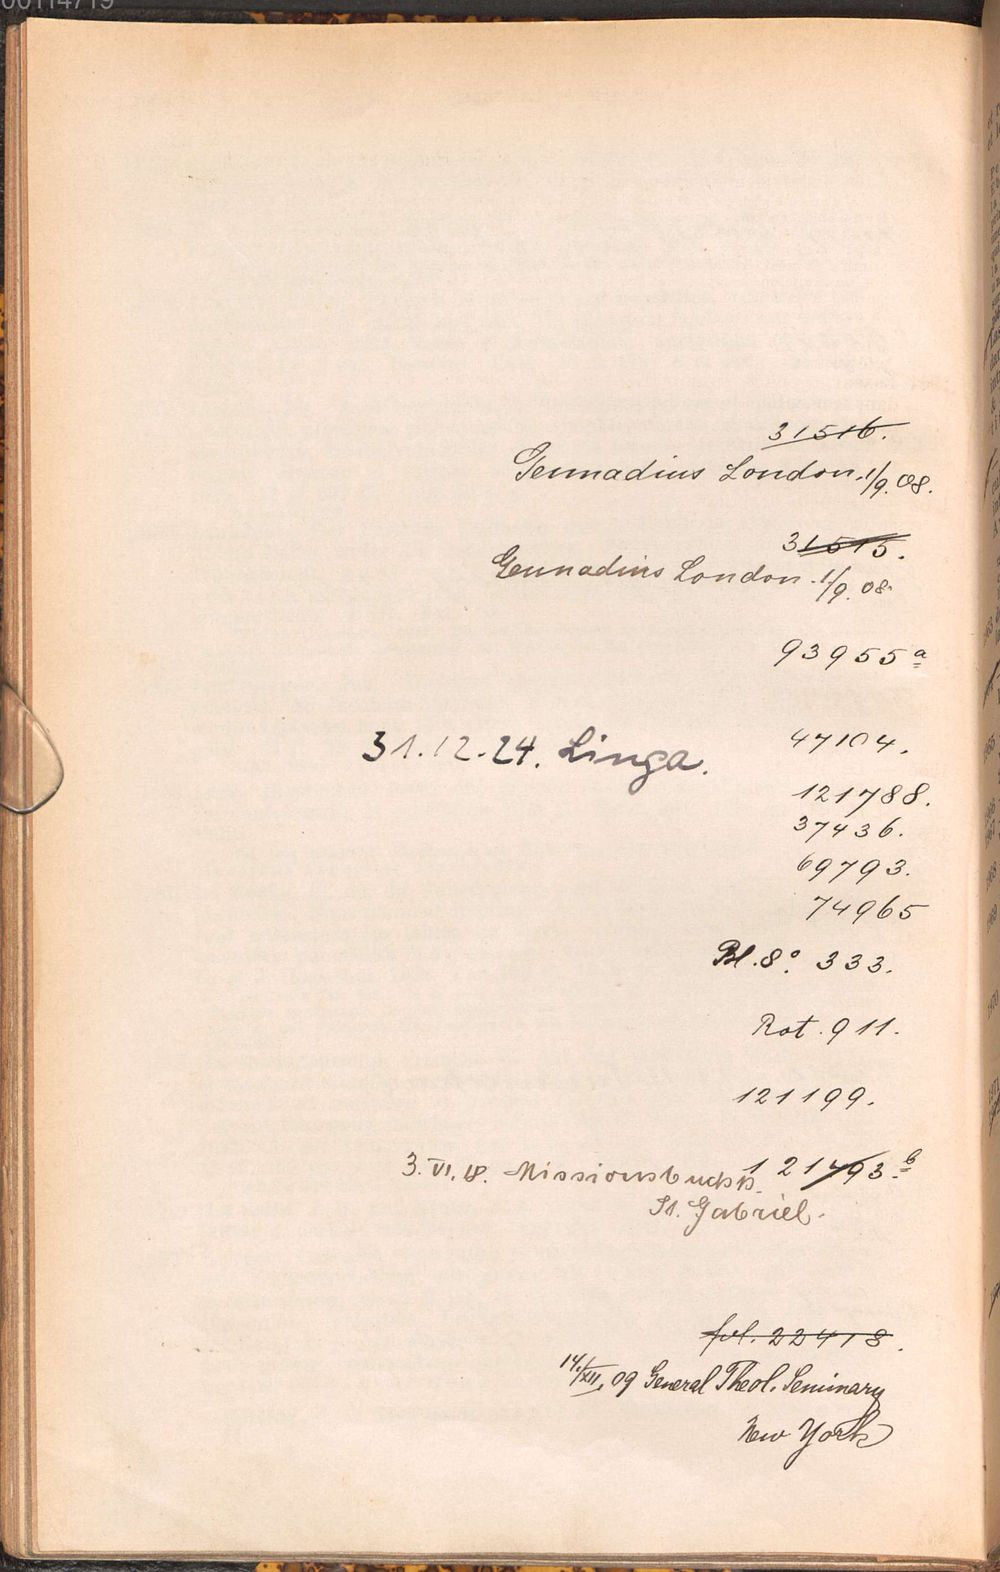 00114719
31516.
Gennadius London. 1/9. 08.
31515.
Gennadius London. 1/9. 08.
93955 a
47104.
31.12.24. Linga.
121788.
37436.
69793.
74965
Bl. 8° 333.
Rot. 911.
121199.
121793. b
3. VI. 18. Missionsbuchh.
St. Gabriel.
fol. 22418.
14./XII. 09 General Theol. Seminary
New York